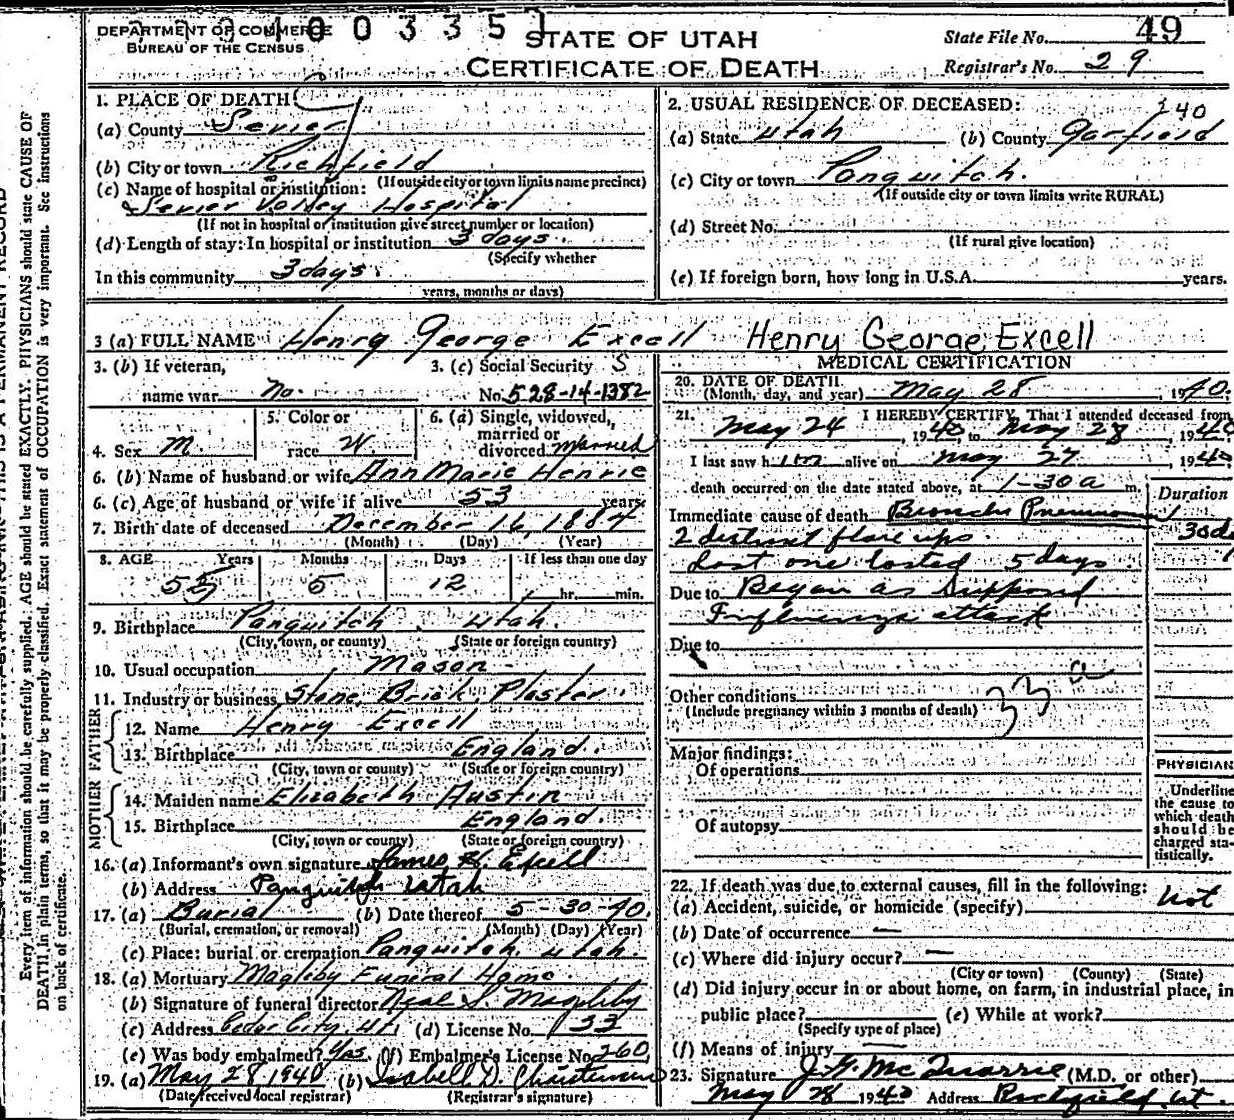 DEPARTMENT OF COMMERCE
BUREAU OF THE CENSUS
400335
STATE OF UTAH
CERTIFICATE OF DEATH
State File No. 49
Registrar's No. 29
1. PLACE OF DEATH
(a) County Sevier
(b) City or town Richfield
(If outside city or town limits name precinct)
(c) Name of hospital or institution:
Sevier Valley Hospital
(If not in hospital or institution give street number or location)
(d) Length of stay: In hospital or institution 3 days.
(Specify whether
In this community 3 days.
years, months or days)
2. USUAL RESIDENCE OF DECEASED:
(a) State Utah (b) County Garfield
(c) City or town Panguitch.
(If outside city or town limits write RURAL)
(d) Street No.
(If rural give location)
(e) If foreign born, how long in U.S.A. years.
3 (a) FULL NAME Henry George Excell Henry George Excell
3. (b) If veteran,
name war No.
3. (c) Social Security
No. 528-14-1382
4. Sex M.
5. Color or
race W.
6. (a) Single, widowed,
married or
divorced Married
6. (b) Name of husband or wife Ann Marie Henrie
6. (c) Age of husband or wife if alive 53 years
7. Birth date of deceased December 16, 1884
(Month) (Day) (Year)
8. AGE Years Months Days If less than one day
55 5 12 hr. min.
9. Birthplace Panguitch, Utah.
(City, town, or county) (State or foreign country)
10. Usual occupation Mason
11. Industry or business Stone, Brick, Plaster
FATHER
12. Name Henry Excell
13. Birthplace England.
(City, town or county) (State or foreign country)
MOTHER
14. Maiden name Elizabeth Austin
15. Birthplace England
(City, town or county) (State or foreign country)
16. (a) Informant's own signature James H. Excell
(b) Address Panguitch Utah
17. (a) Burial (b) Date thereof 5-30-40.
(Burial, cremation, or removal) (Month) (Day) (Year)
(c) Place: burial or cremation Panguitch, Utah.
18. (a) Mortuary Magleby Funeral Home.
(b) Signature of funeral director Neal S. Magleby
(c) Address Cedar City, Ut. (d) License No. 133
(e) Was body embalmed? Yes. (f) Embalmer's License No. 260
19. (a) May 28, 1940 (b) Isabell D. Christensen
(Date received local registrar) (Registrar's signature)
MEDICAL CERTIFICATION
20. DATE OF DEATH
(Month, day, and year) May 28, 1940.
21. I HEREBY CERTIFY, That I attended deceased from
May 24, 1940, to May 28, 1940
I last saw him alive on May 27, 1940
death occurred on the date stated above, at 1-30 a m.
Duration
Immediate cause of death Broncho Pneumonia
2 distinct flare ups.
Last one lasted 5 days
Due to Began as Supposed
Influenza attack
Due to
Other conditions
(Include pregnancy within 3 months of death)
33 a
Major findings:
Of operations
Of autopsy
PHYSICIAN
Underline
the cause to
which death
should be
charged sta-
tistically.
22. If death was due to external causes, fill in the following:
(a) Accident, suicide, or homicide (specify) not
(b) Date of occurrence —
(c) Where did injury occur? —
(City or town) (County) (State)
(d) Did injury occur in or about home, on farm, in industrial place, in
public place? (e) While at work?
(Specify type of place)
(f) Means of injury —
23. Signature J. G. McQuarrie (M.D. or other)
May 28 1940 Address Richfield, Ut.
Every item of information should be carefully supplied. AGE should be stated EXACTLY. PHYSICIANS should state CAUSE OF
DEATH in plain terms, so that it may be properly classified. Exact statement of OCCUPATION is very important. See instructions
on back of certificate.